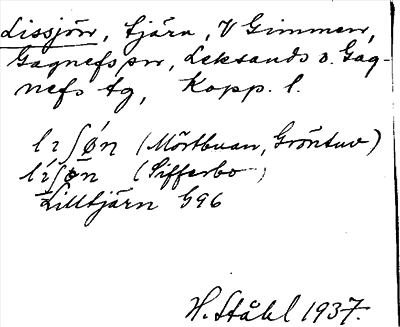 Lissjön, tjärn, V Gimmen,
Gagnefs sn, Leksands o. Gag-
nefs tg, Kopp. l.
lɪʃǿn (Mörtbuan, Gröntuv)
lɪ́ʃøn (Sifferbo)
Lilltjärn G96
H. Ståhl 1937.